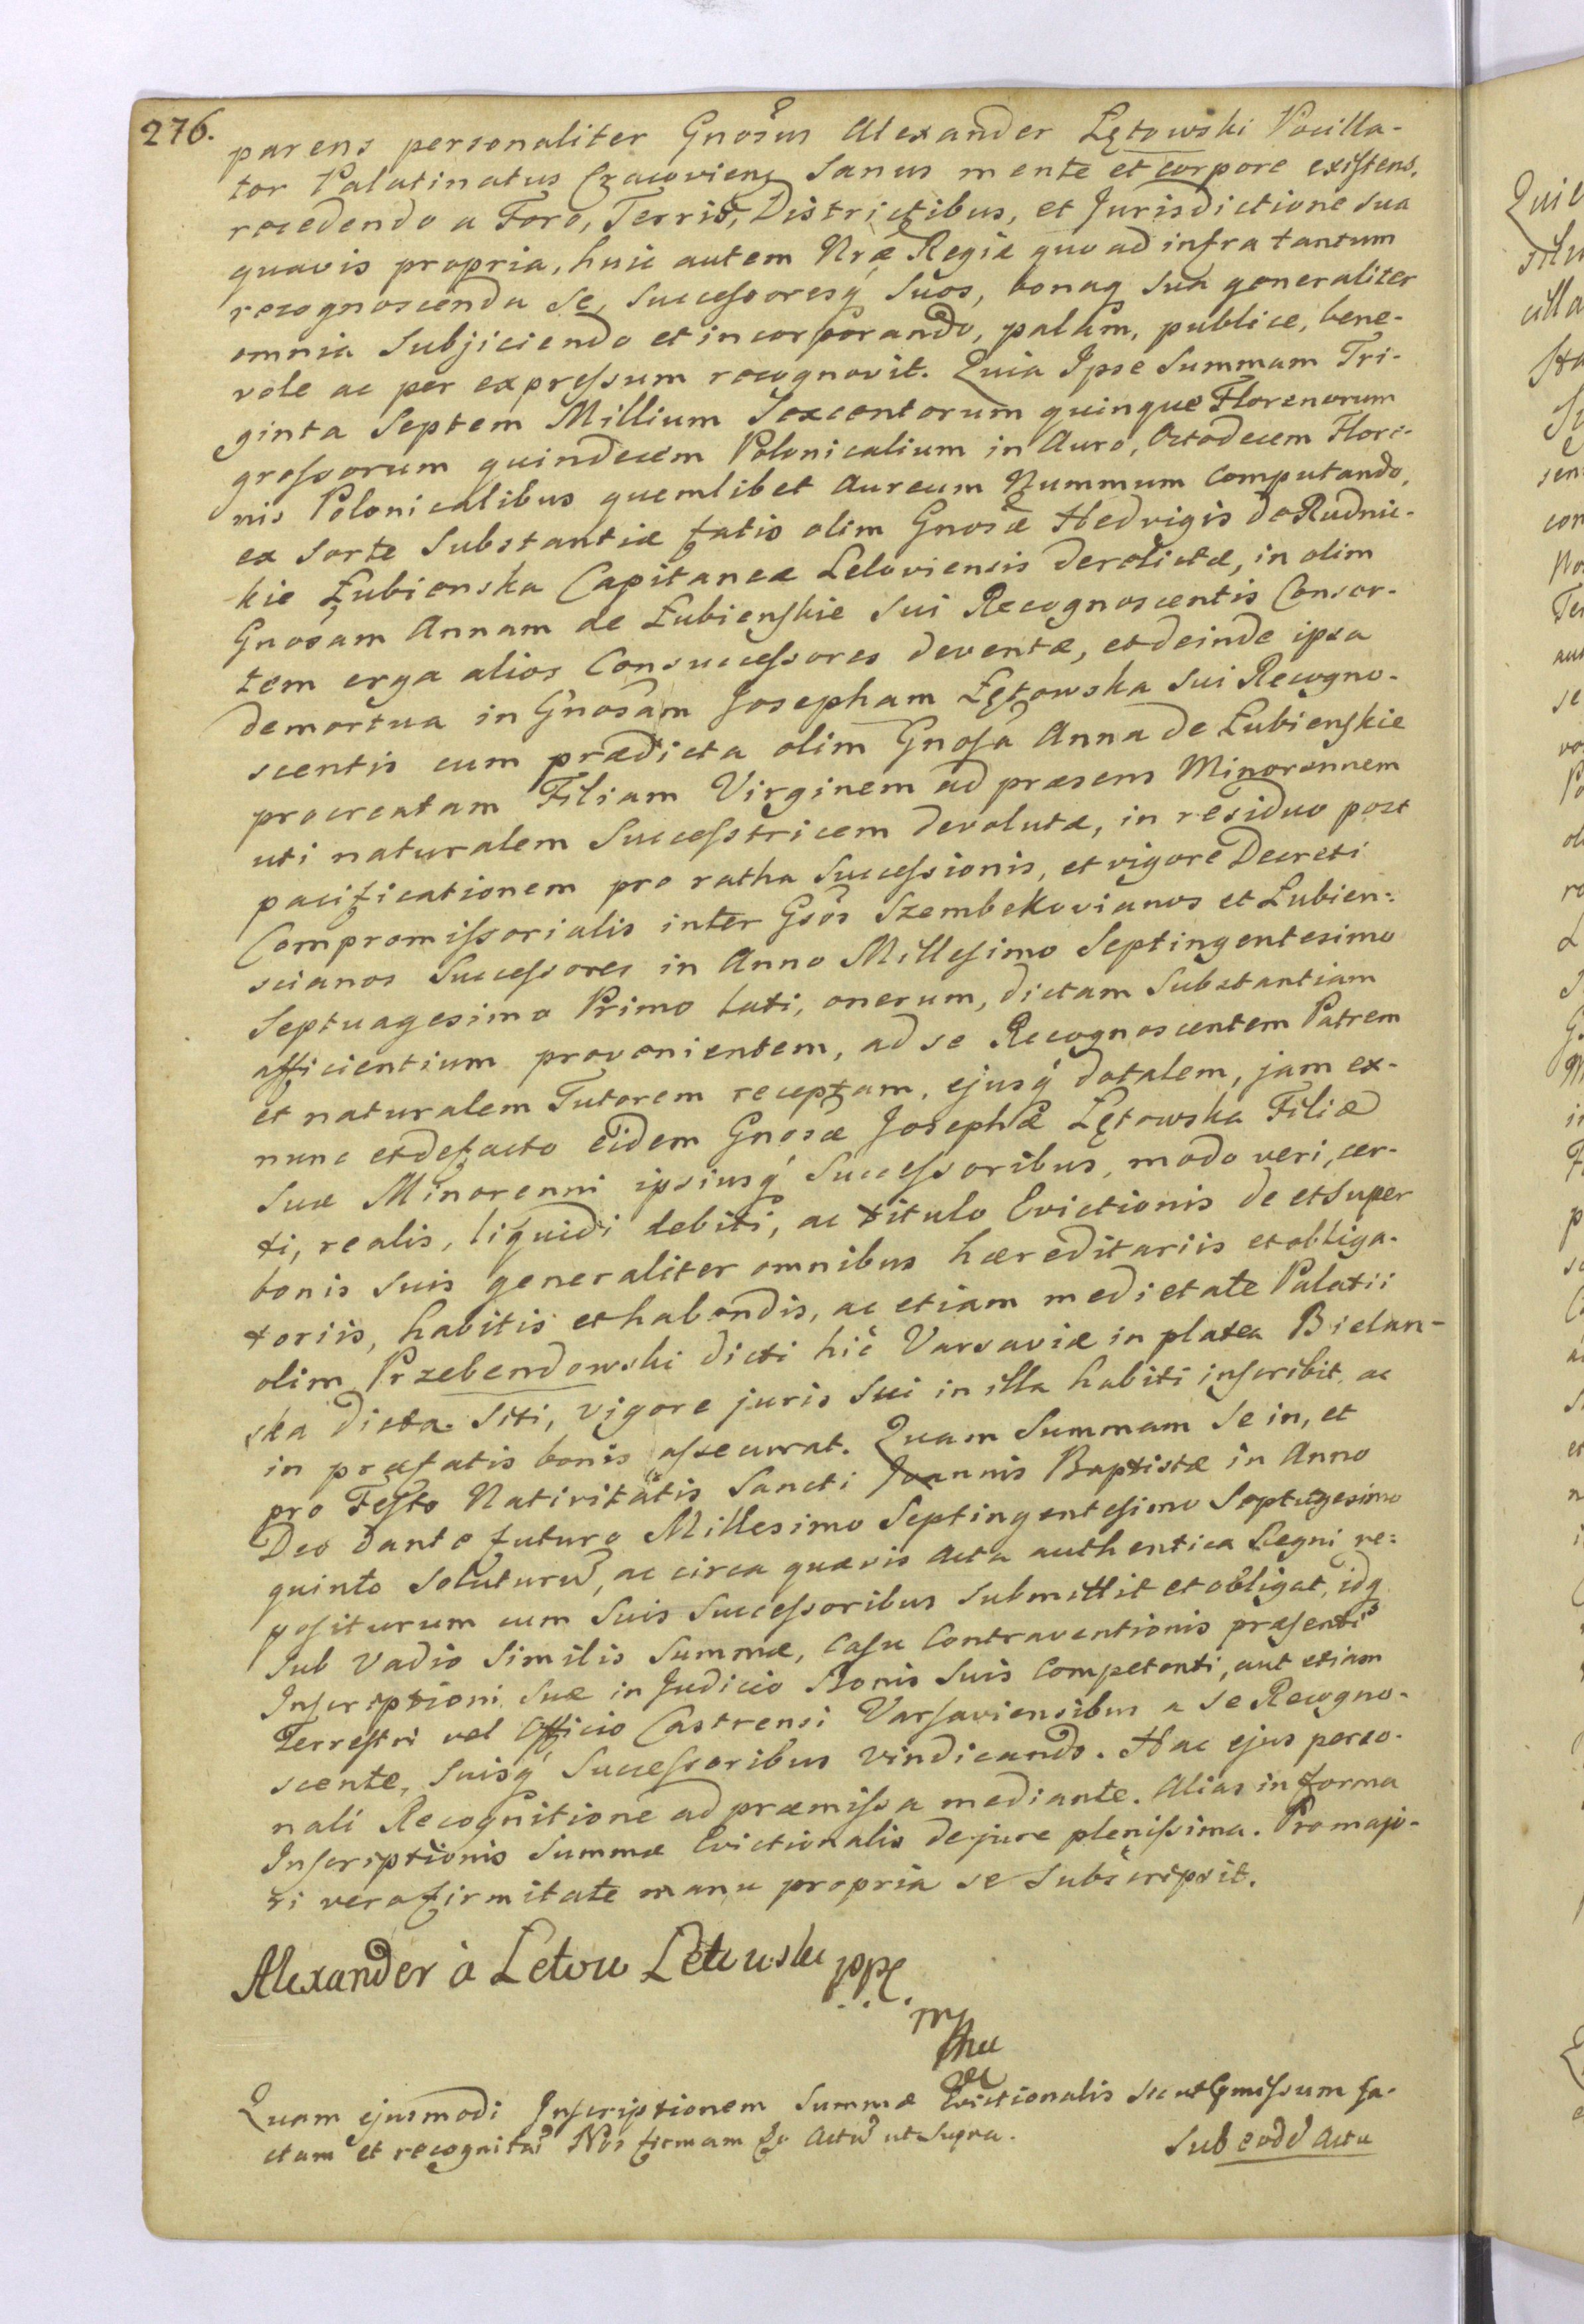 276.
parens personaliter Gnosus Alexander Łętowski Pocilla-
tor Palatinatus Cracovieng Sanus mente et corpore existens,
recedendo a Foro, Terris, Districtibus, et Jurisdictione sua
quavis propria, huic autem Nræ Regiæ quo ad infra tantum
recognoscenda se, Successoresq́ Suos, bonaq Sua generaliter
omnia Subjiciendo et incorporando, palam, publice, bene-
vole ac per expressum recognovit. Quia Ipse Summam Tri-
ginta Septem Millium Sexcentorum quinque Florenorum
grossorum quindecem Polonicalium in Auro, Octodecem Flore-
nis Polonicalibus quemlibet Aureum Nummum Computando,
ex Sorte Substantiæ fatis olim Gnosæ Hedvigis de Rudnic-
kie Łubienska Capitaneæ Leloviensis derelictæ, in olim
Gnosam Annam de Łubienskie Sui Recognoscentis Consor-
tem erga alios Consuccessores deventæ, et deinde ipsa
demortua in Gnosam Josepham Łętowska Sui Recogno-
scentis cum prædicta olim Gnosa Anna de Łubienskie
procreatam Filiam Virginem ad præsens Minorennem
uti naturalem Successtricem devolutæ, in residuo post
pacificationem pro ratha Successionis, et vigore Decreti
Compromissorialis inter Gsos Szembekovianos et Łubien:
scianos Successores in Anno Millesimo Septingentesimo
Septuagesimo Primo lati, onerum, dictam Substantiam
afficientium provenientem, ad se Recognoscentem Patrem
et naturalem Tutorem receptam, ejusq́ dotalem, jam ex-
nunc et defacto eidem Gnosæ Josephæ Łętowska Filiæ
Suæ Minorenni ipsiusq́ Successoribus, modo veri, cer-
ti, realis, liquidi debiti, ac titulo Evictionis de et super
bonis Suis generaliter omnibus hæreditariis et obliga-
toriis, habitis et habendis, ac etiam medietate Palatii
olim Przebendowski dicti hic Varsaviæ in platea Bielan-
ska dicta Siti, vigore juris Sui in illa habiti inscribit, ac
in præfatis bonis assecurat. Quam Summam Se in, et
pro Festo Nativitatis Sancti Joannis Baptistæ in Anno
Deo dante futuro Millesimo Septingentesimo Septuagesimo
quinto Soluturũ, ac circa quævis Acta authentica Regni re:
positurum cum Suis Successoribus Submittit et obligat, idq
Sub vadio Similis Summæ, Casu Contraventionis præsenti
Inscriptioni Suæ in Judicio Bonis Suis Competenti, aut etiam
Terrestri vel Officio Castrensi Varsaviensibus a Se Recogno-
scente, Suisq́ Successoribus vindicando. Hac ejus perso-
nali Recognitione ad præmissa mediante. Alias in forma
Inscriptionis Summæ Evictionalis de jure plenissima. Pro majo-
ri vero firmitate manu propria se Subscripsit.
Alexander à Letow Letowski
Quam ejusmodi Inscriptionem Summæ Evictionalis sic ut pmissum fa-
ctam et recognitã Nos firmam Actũ ut Supra.
Sub eodẽ Actu